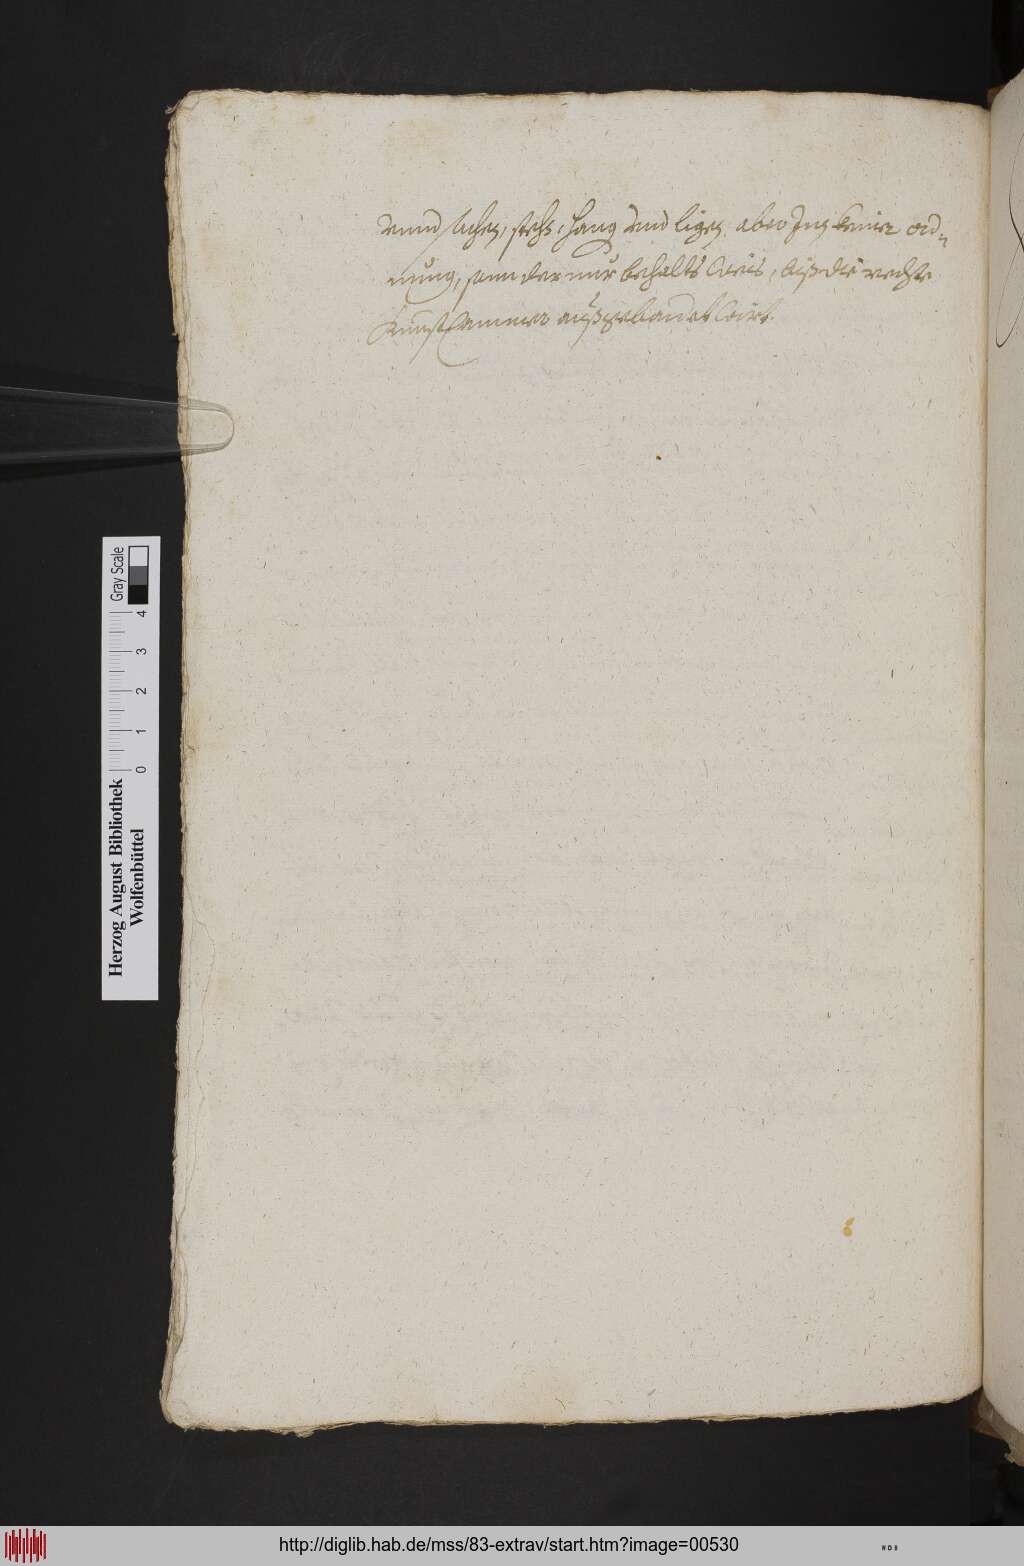 vnnd sachen, stehet, hang vnd ligen, aber Inn keiner ord„
nung, sonnder nur behalts weis, biß die rechte
Kunst Cammer außgebauet wirt.
Herzog August Bibliothek
Wolfenbüttel
0 1 2 3 4
Gray Scale
http://diglib.hab.de/mss/83-extrav/start.htm?image=00530